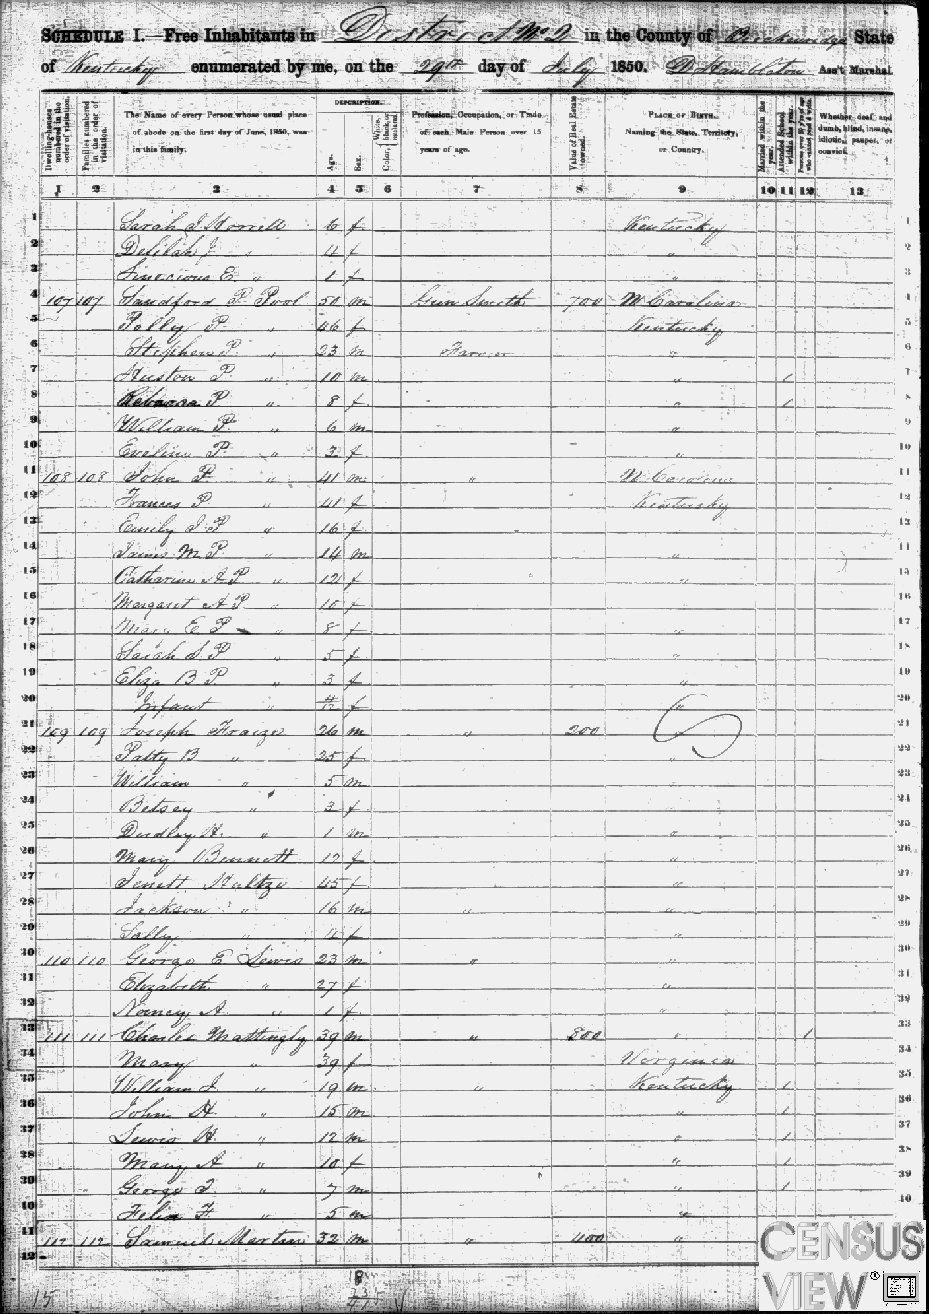 SCHEDULE I.—Free Inhabitants in District No 2 in the County of Breckenridge State
of Kentucky enumerated by me, on the 29th day of July 1850. D. Hambleton Ass't Marshal.
Dwelling-houses numbered in the order of visitation.
Families numbered in the order of visitation.
The Name of every Person whose usual place of abode on the first day of June, 1850, was in this family.
DESCRIPTION.
Age.
Sex.
Color, White, black, or mulatto.
Profession, Occupation, or Trade of each Male Person over 15 years of age.
Value of Real Estate owned.
PLACE OF BIRTH. Naming the State, Territory, or Country.
Married within the year.
Attended School within the year.
Persons over 20 y'rs of age who cannot read & write.
Whether deaf and dumb, blind, insane, idiotic, pauper, or convict.
1 2 3 4 5 6 7 8 9 10 11 12 13
1 Sarah J Horrell 6 f Kentucky 1
2 Delilah J " 4 f " 2
3 E " 1 f " 3
4 107 107 Sandford P. Pool 50 m Gun Smith 700 N Carolina 4
5 Polly P. " 46 f Kentucky 5
6 Stephen P. " 23 m Farmer " 6
7 Huston P. " 10 m " 1 7
8 Rebecca P " 8 f " 1 8
9 William P. " 6 m " 9
10 Eveline P. " 3 f " 10
11 108 108 John P. " 41 m " N Carolina 11
12 Frances P " 41 f Kentucky 12
13 Emily J P " 16 f " 13
14 James M P. " 14 m " 14
15 Catharine A P " 12 f " 15
16 Margaret A P " 10 f 16
17 Mary E P " 8 f " 17
18 Sarah S P " 5 f " 18
19 Eliza B P. " 3 f " 19
20 Infant " 4/12 f " 20
21 109 109 Joseph Fraize 26 m " 200 21
22 Patty B " 25 f " 22
23 William " 5 m " 23
24 Betsey " 3 f 24
25 Dudley H. " 1 m " 25
26 Mary Bennett 12 f " 26
27 Jenett 45 f " 27
28 Jackson " 16 m " " 28
29 Sally " f " 29
30 110 110 George E Lewis 23 m " " 30
31 Elizabeth " 27 f " 31
32 Nancy A. " 1 f " 32
33 111 111 Charles Mattingly 39 m " 800 " 1 33
34 Mary " 39 f Virginia 34
35 William J. " 19 m " Kentucky 1 35
36 John H. " 15 m " 1 36
37 Lewis H. " 12 m " 1 37
38 Mary A " 10 f " 1 38
39 George T. " 7 m " 1 39
40 Felix F. " 5 m " 40
41 112 112 Samuel Martin 32 m " 400 "
42
15
CENSUS
VIEW®